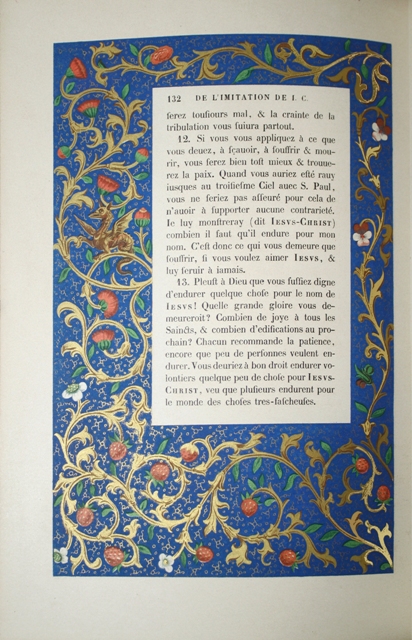 132 DE L'IMITATION DE I. C.
ſerez touſiours mal, & la crainte de la
tribulation vous ſuiura partout.
12. Si vous vous appliquez à ce que
vous deuez, à ſçauoir, à ſouffrir & mou-
rir, vous ſerez bien toſt mieux & trouue-
rez la paix. Quand vous auriez eſté rauy
iusques au troiſieſme Ciel auec S. Paul,
vous ne ſeriez pas aſſeuré pour cela de
n'auoir à ſupporter aucune contrarieté.
Ie luy monſtreray (dit IESVS-CHRIST)
combien il faut qu'il endure pour mon
nom. C'eſt donc ce qui vous demeure que
ſouffrir, ſi vous voulez aimer IESVS, &
luy ſeruir à iamais.
13. Pleuſt à Dieu que vous fuſſiez digne
d'endurer quelque choſe pour le nom de
IESVS! Quelle grande gloire vous de-
meureroit? Combien de joye à tous les
Saincts, & combien d'edification au pro-
chain? Chacun recommande la patience,
encore que peu de perſonnes veulent en-
durer. Vous deuriez à bon droit endurer vo-
lontiers quelque peu de choſe pour IESVS-
CHRIST, veu que pluſieurs endurent pour
le monde des choſes tres-faſcheuſes.